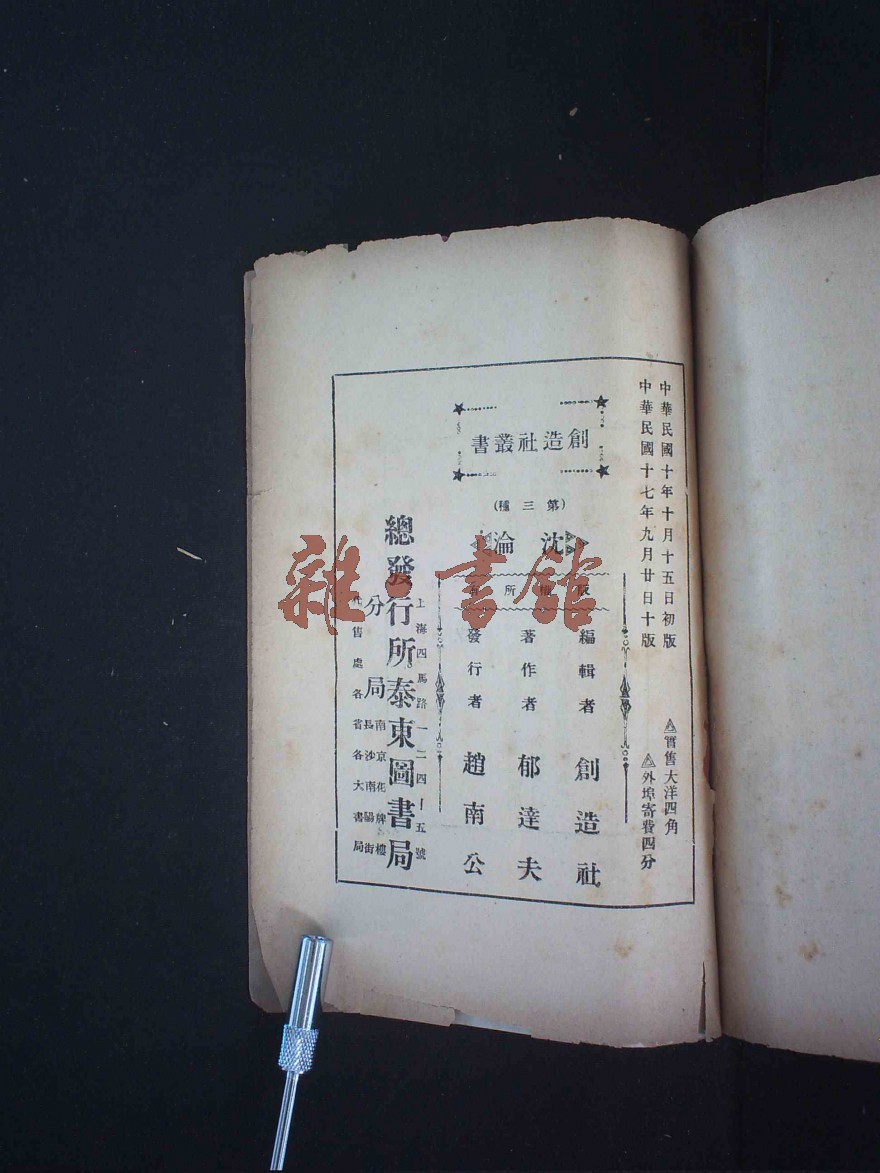 中華民國十年十月十五日初版
中華民國十七年九月廿日十版
實售大洋四角
外埠寄費四分
創造社叢書
(第三種)
沈淪
版權所有
編輯者 創造社
著作者 郁達夫
發行者 趙南公
上海四馬路一二四—五號
總發行所 泰東圖書局
分局
南京花牌樓
長沙南陽街
代售處 各省各大書局
雜·書館